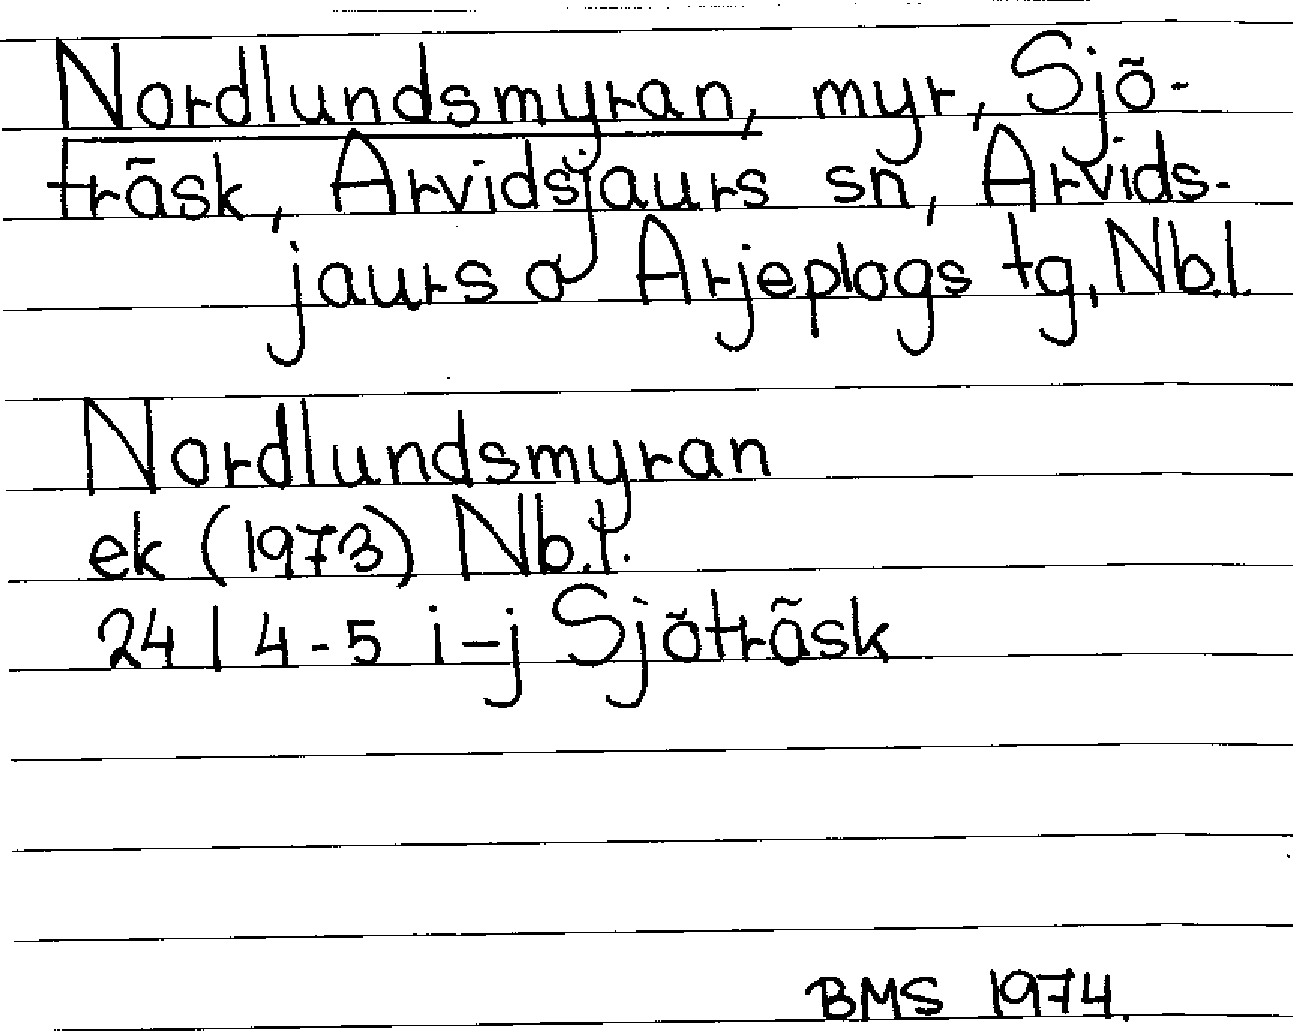 Nordlundsmyran, myr, Sjö-
träsk, Arvidsjaurs sn, Arvids-
jaurs o Arjeplogs tg, Nb.l.
Nordlundsmyran
ek (1973) Nb.l.
24 I 4-5 i-j Sjöträsk
BMS 1974.